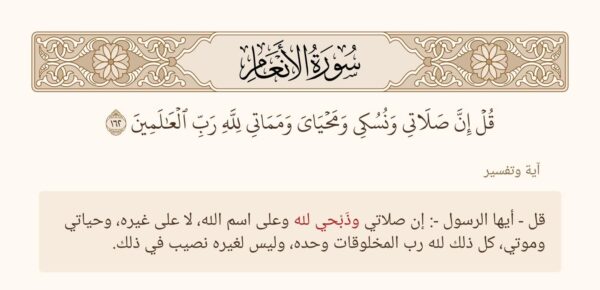 سُورَةُ الأَنْعَامِ
قُلْ إِنَّ صَلَاتِي وَنُسُكِي وَمَحْيَايَ وَمَمَاتِي لِلَّهِ رَبِّ الْعَالَمِينَ ١٦٢
آية وتفسير
قل - أيها الرسول -: إن صلاتي وذَبْحي لله وعلى اسم الله، لا على غيره، وحياتي
وموتي، كل ذلك لله رب المخلوقات وحده، وليس لغيره نصيب في ذلك.